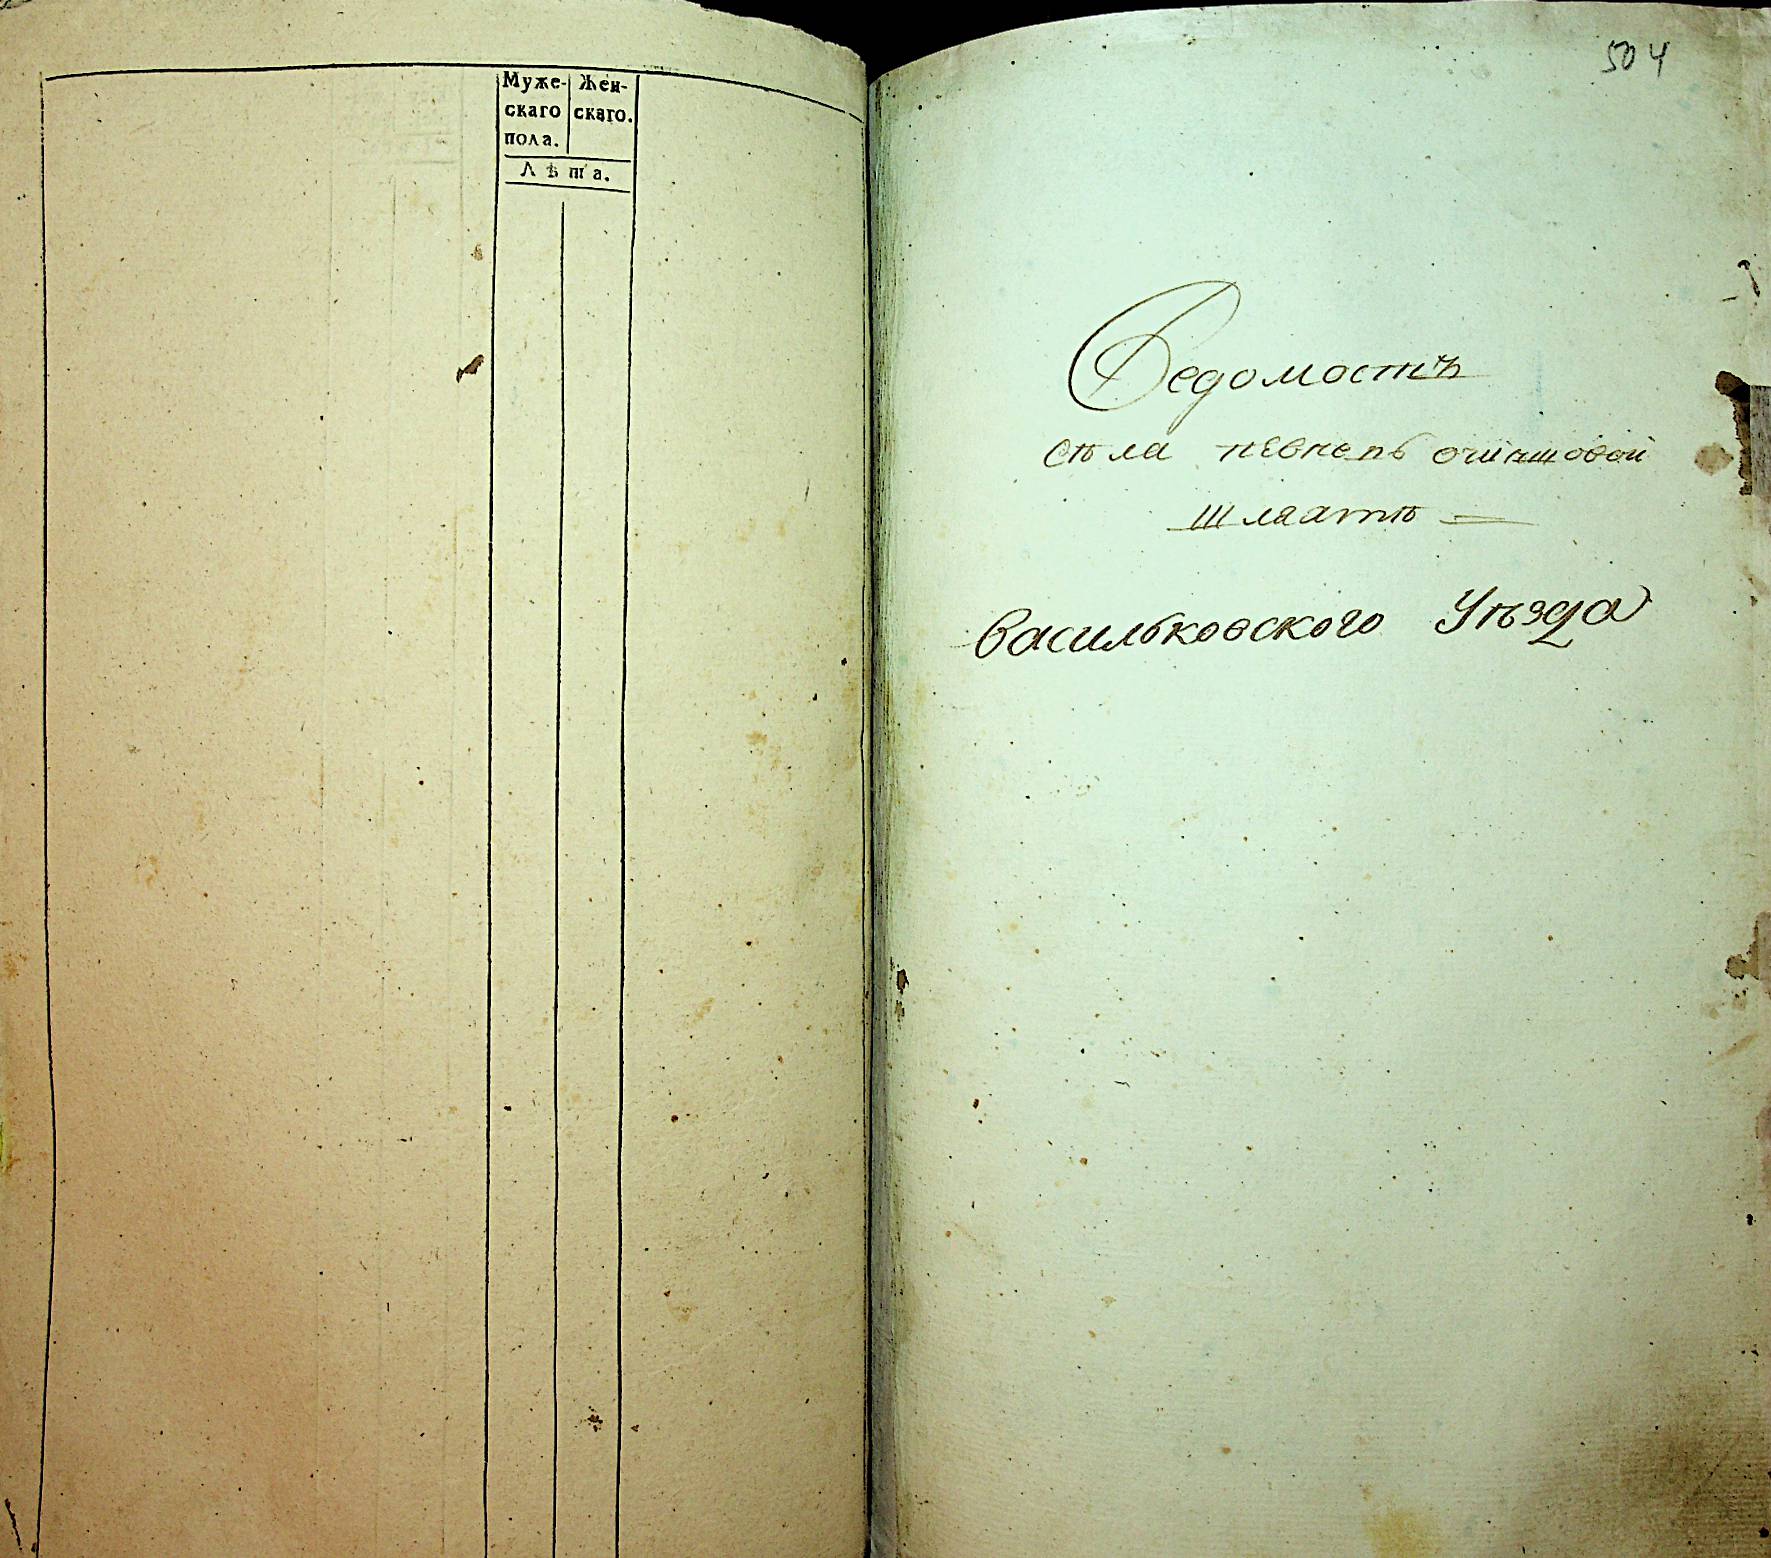 Муже-
скаго
пола.
Жен-
скаго.
Лѣта.
504
Ведомость
Сѣла певнепь очиншовой
шлаатѣ
васильковского Уѣзда